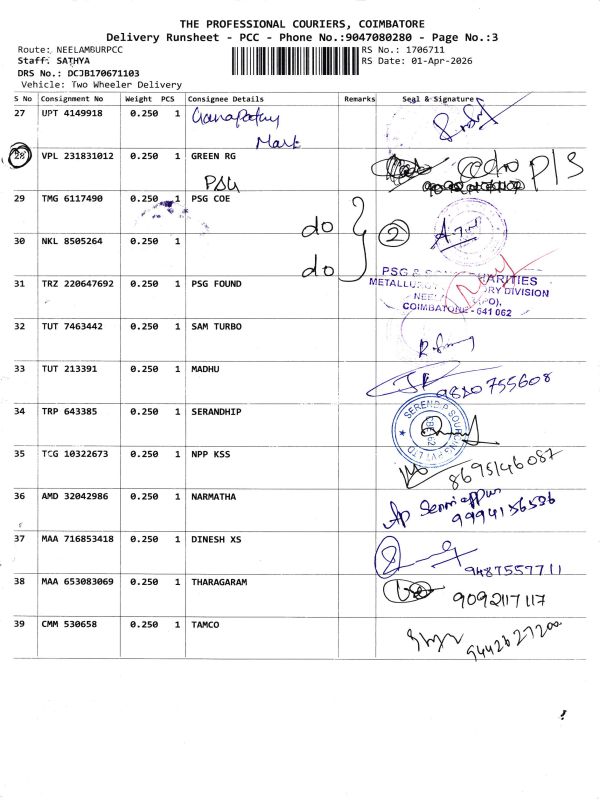 THE PROFESSIONAL COURIERS, COIMBATORE
Delivery Runsheet - PCC - Phone No.:9047080280 - Page No.:3
Route: NEELAMBURPCC RS No.: 1706711
Staff: SATHYA RS Date: 01-Apr-2026
DRS No.: DCJB170671103
Vehicle: Two Wheeler Delivery
S No Consignment No Weight PCS Consignee Details Remarks Seal & Signature
27 UPT 4149918 0.250 1 Ganapathy
Mark
28 VPL 231831012 0.250 1 GREEN RG P/S
PSG
29 TMG 6117490 0.250 1 PSG COE
do
30 NKL 8505264 0.250 1 2
do
PSG & SONS CHARITIES
31 TRZ 220647692 0.250 1 PSG FOUND
METALLURGY DIVISION
COIMBATORE - 641 062
32 TUT 7463442 0.250 1 SAM TURBO
33 TUT 213391 0.250 1 MADHU
9820755608
34 TRP 643385 0.250 1 SERANDHIP
SERENDIP SOURCING PVT LTD
35 TCG 10322673 0.250 1 NPP KSS
8695146087
36 AMD 32042986 0.250 1 NARMATHA
9994156536
37 MAA 716853418 0.250 1 DINESH XS
9487557711
38 MAA 653083069 0.250 1 THARAGARAM
9092117117
39 CMM 530658 0.250 1 TAMCO